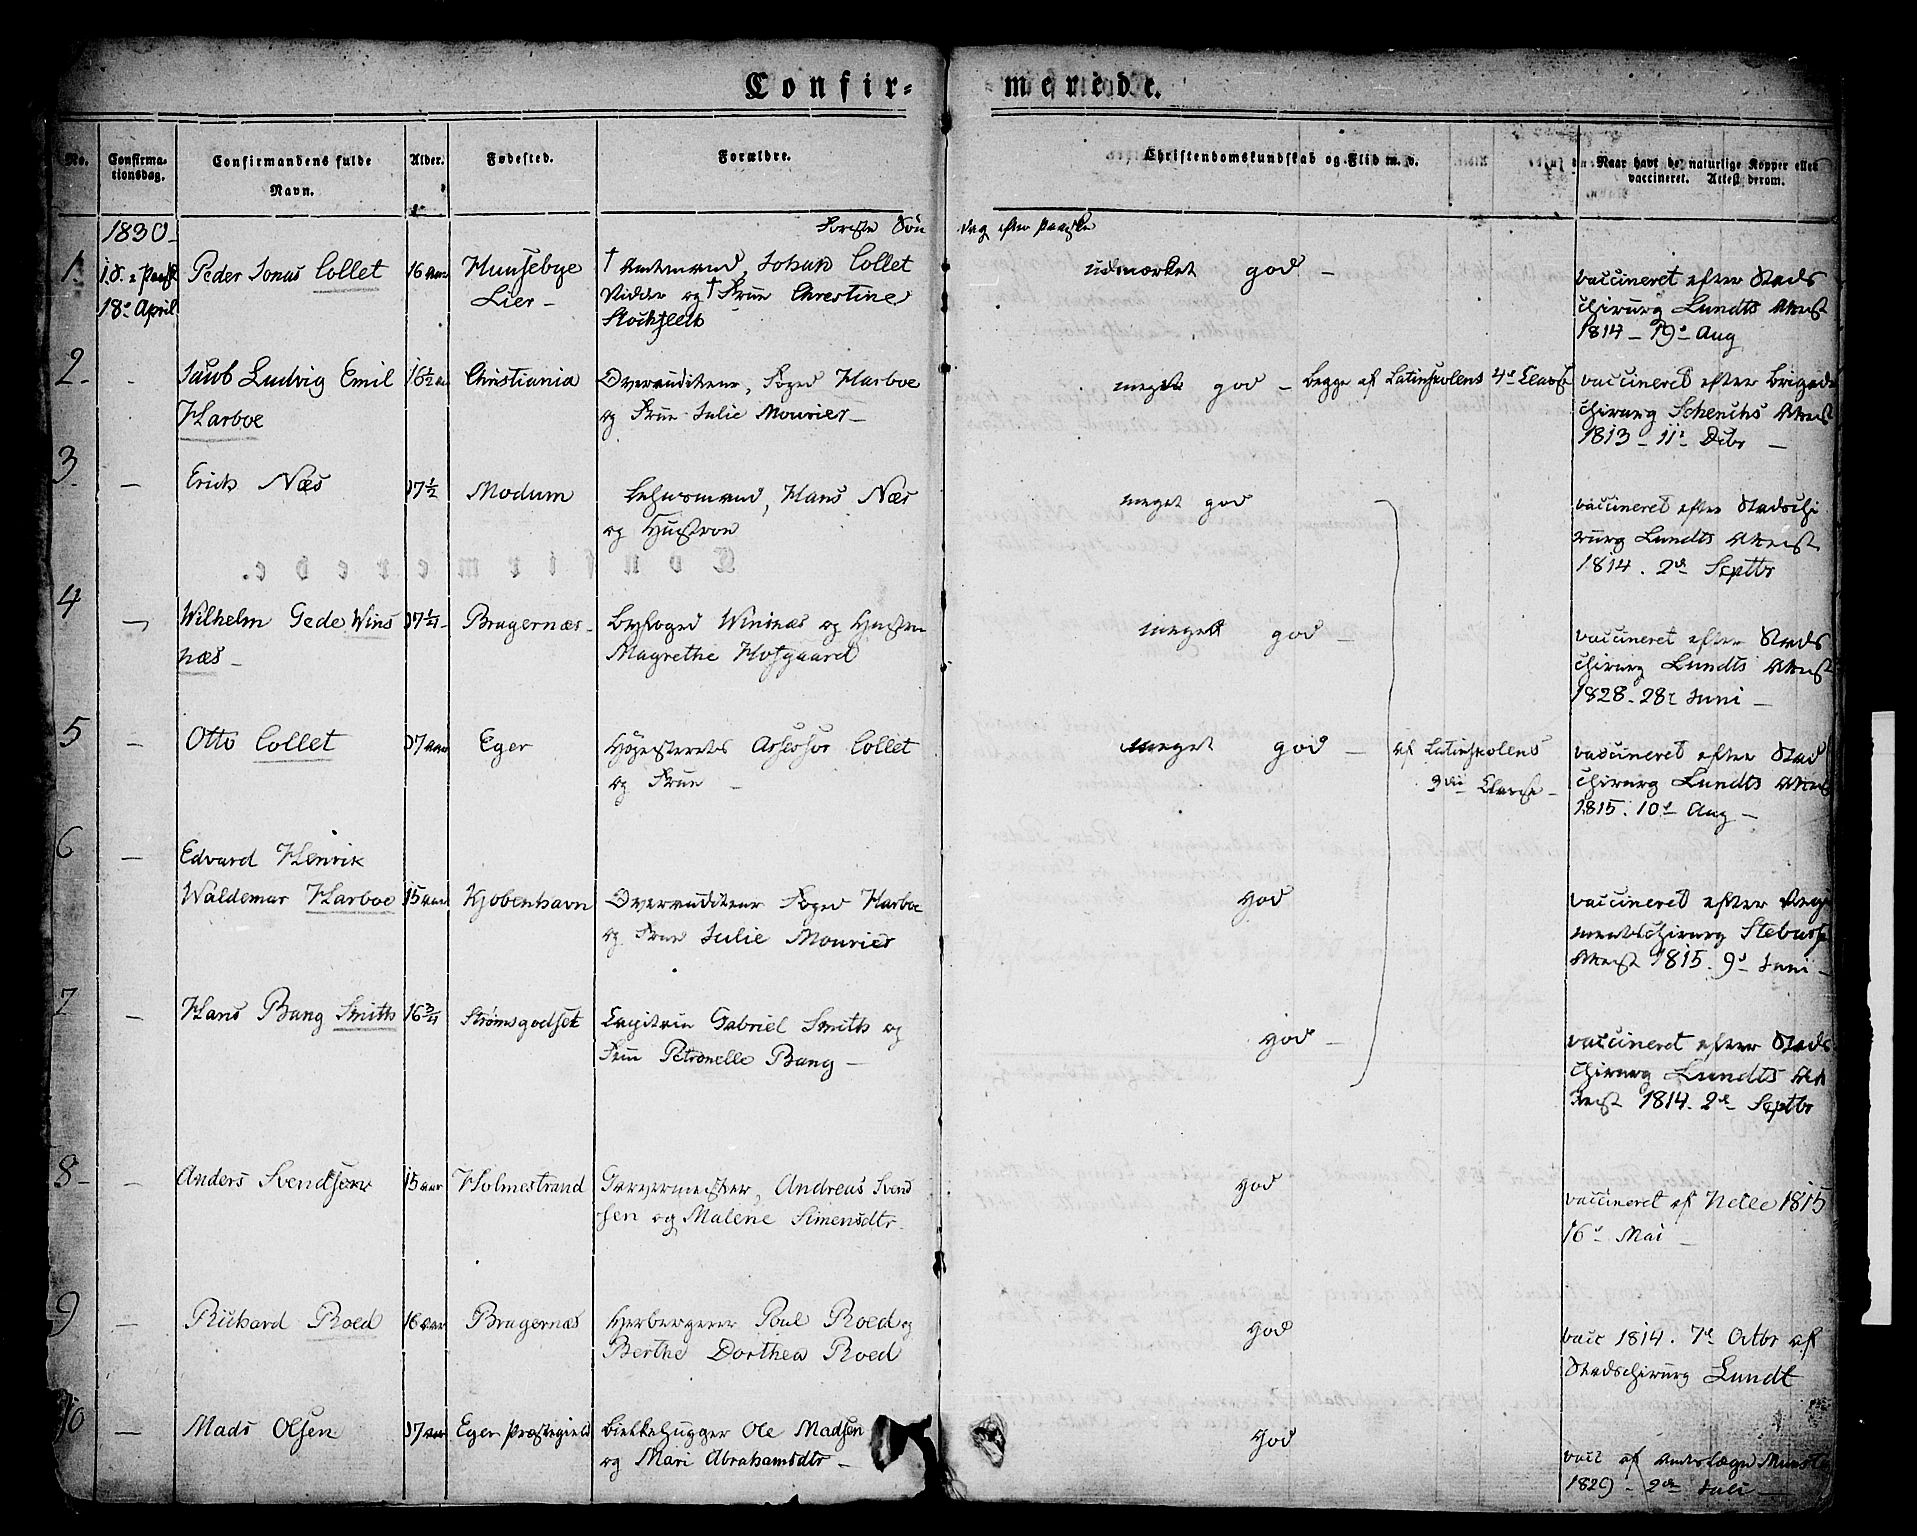 Confir- merede.
No. Confirma- tionsdag. Confirmandens fulde Navn. Alder. Fødested. Forældre. Christendomskundskab og Flid m. v. Naar havt de naturlige Kopper eller vaccineret. Attest derom.
1830 Første Søn dag efter Paaske
1. 1. S. e. Paask
18e April
Peder Jonas Collet
16 aar
Huusebye
Lier -
† Amtmand Johan Collet
Ridder og † Frue Christine
Stockfleth
udmærket god -
vaccineret efter Stads
chirurg Lundts Attest
1814 - 19e Aug
2 - Jacob Ludvig Emil
Harboe
16½ aar
Christiania
Overauditeur, Foged Harboe
og Frue Julie Mourier -
meget god - begge af Latinskolens 4de Classe
vaccineret efter Brigade
chirurg Schencks Attest
1813 - 11e Decbr -
3. - Erich Næs
17½
Modum
Lehnsmand, Hans Næs
og Hustroe
meget god
vaccineret efter Stadschi
rurg Lundts Attest
1814. 2de Septbr
4 - Wilhelm Gede Wins
næs -
17¼ -
Bragernæs -
Byfoged Winsnæs og Hustru
Magrethe Hofgaard
meget god -
vaccineret efter Stads
chirurg Lundts Attest
1828. 28e Juni -
5 - Otto Collet
17 aar
Eger
Høiesterets Assessor Collet
og Frue -
meget god - af Latinskolens
3die Classe -
vaccineret efter Stad
chirurg Lundts Attest
1815. 10de Aug -
6 - Edvard Henrik
Waldemar Harboe
15 aar
Kjøbenhavn
Overauditeur Foged Harboe
og Frue Julie Mourier
god
vaccineret efter Regi
mentschirurg
Attest 1815. 9e Juni -
7 - Hans Bang Smith
16¾
Strømsgodset
Capitain Gabriel Smith og
Frue Petronelle Bang -
god -
vaccineret efter Stads
chirurg Lundts At
test 1814. 2de Septbr
8 - - Anders Svendsen
15 aar
Holmestrand
Garvermester, Andreas Svend
sen og Malene Simensdtr.
god
vaccineret af Nelle 1815
16e Mai -
9 - Richard Roed
16 aar
Bragernæs
Herbergerer Poul Roed og
Berthe Dorthea Roed
god
vacc 1814. 7de Octbr af
Stadschirurg Lundt
10 - Mads Olsen
17 aar
Eger Præstegield
Blokkehugger Ole Madsen
og Mari Abrahamsdtr -
god
vacc af
1829 - 2den Juli -